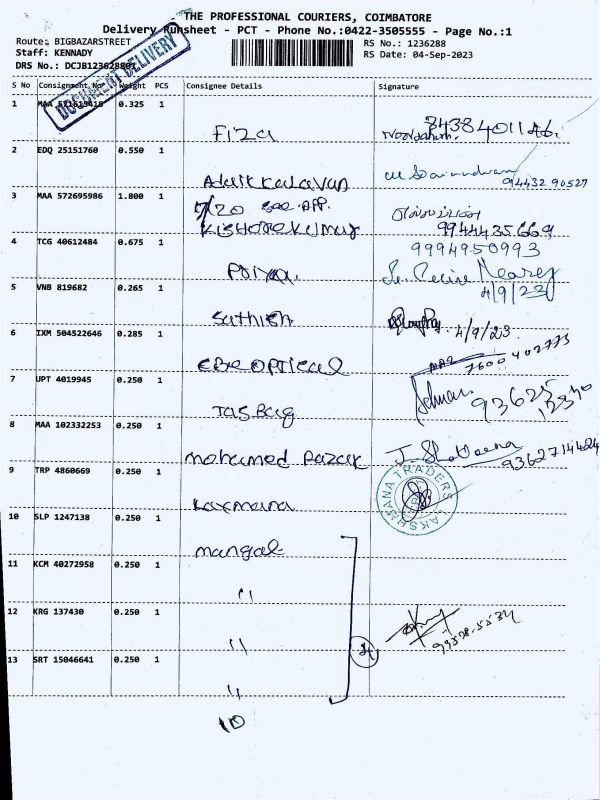 THE PROFESSIONAL COURIERS, COIMBATORE
Delivery Runsheet - PCT - Phone No.:0422-3505555 - Page No.:1
Route: BIGBAZARSTREET
RS No.: 1236288
Staff: KENNADY
RS Date: 04-Sep-2023
DRS No.: DCJB123628801
DOCUMENT DELIVERY
S No Consignment No Weight PCS Consignee Details Signature
1 MAA 571615418 0.325 1
Fiza
2 EDQ 25151760 0.550 1
Adaikkalavan
94432 90527
3 MAA 572695986 1.800 1
7/20
Kishorekumar
9944435669
4 TCG 40612484 0.675 1
9994950993
Priya
5 VNB 819682 0.265 1
4/9/23
Sathish
6 IXM 504522646 0.285 1
4/9/23
Optical
7600402773
7 UPT 4019945 0.250 1
Bag
8 MAA 102332253 0.250 1
mohamed
9362714424
9 TRP 4860669 0.250 1
Laxmana
LAKSHMANA TRADERS
10 SLP 1247138 0.250 1
mangal
11 KCM 40272958 0.250 1
"
12 KRG 137430 0.250 1
"
13 SRT 15046641 0.250 1
"
10